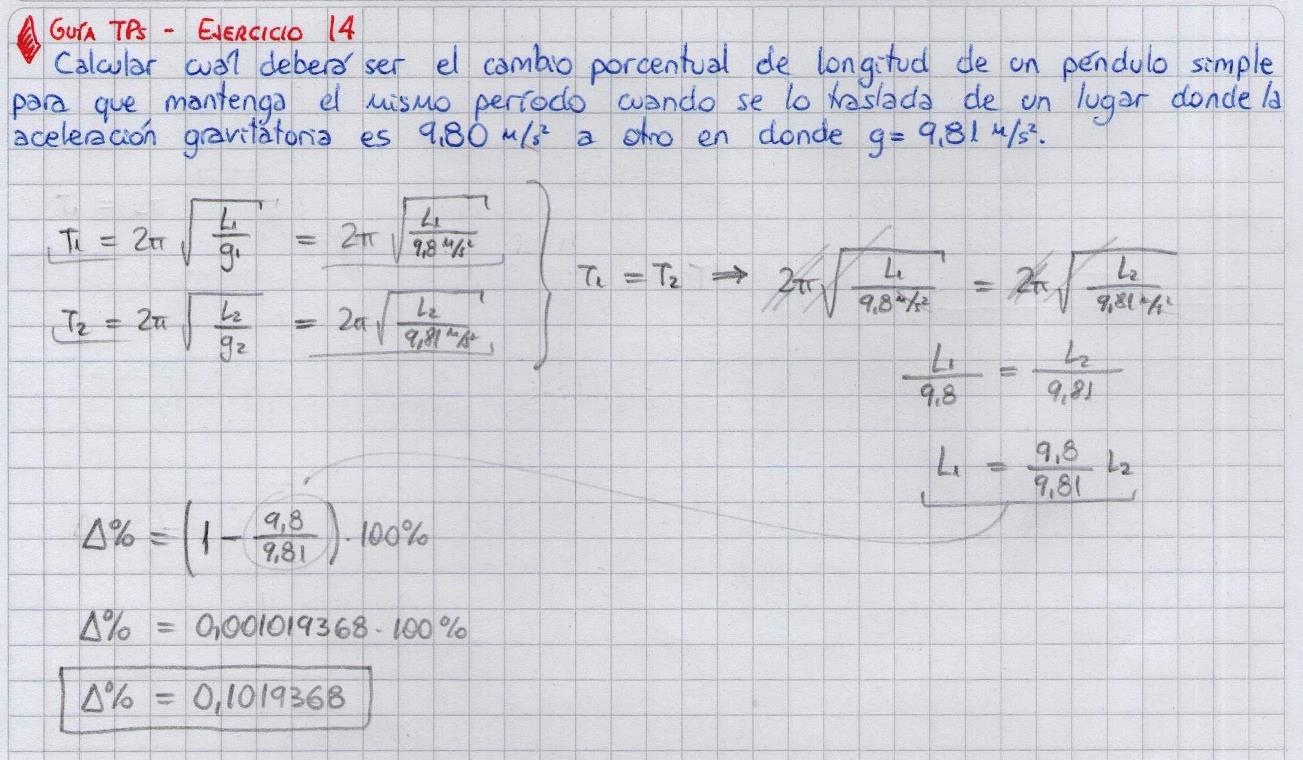 GUÍA TPs - EJERCICIO 14
Calcular cuál deberá ser el cambio porcentual de longitud de un péndulo simple
para que mantenga el mismo período cuando se lo traslada de un lugar donde la
aceleración gravitatoria es 9,80 m/s² a otro en donde g= 9,81 m/s².
T₁ = 2π √(L₁/g₁) = 2π √(L₁/9,8 m/s²)
T₂ = 2π √(L₂/g₂) = 2π √(L₂/9,81 m/s²)
T₁ = T₂ ⇒ 2π √(L₁/9,8 m/s²) = 2π √(L₂/9,81 m/s²)
L₁/9,8 = L₂/9,81
L₁ = 9,8/9,81 L₂
Δ% = (1 - 9,8/9,81) · 100%
Δ% = 0,001019368 · 100%
Δ% = 0,1019368